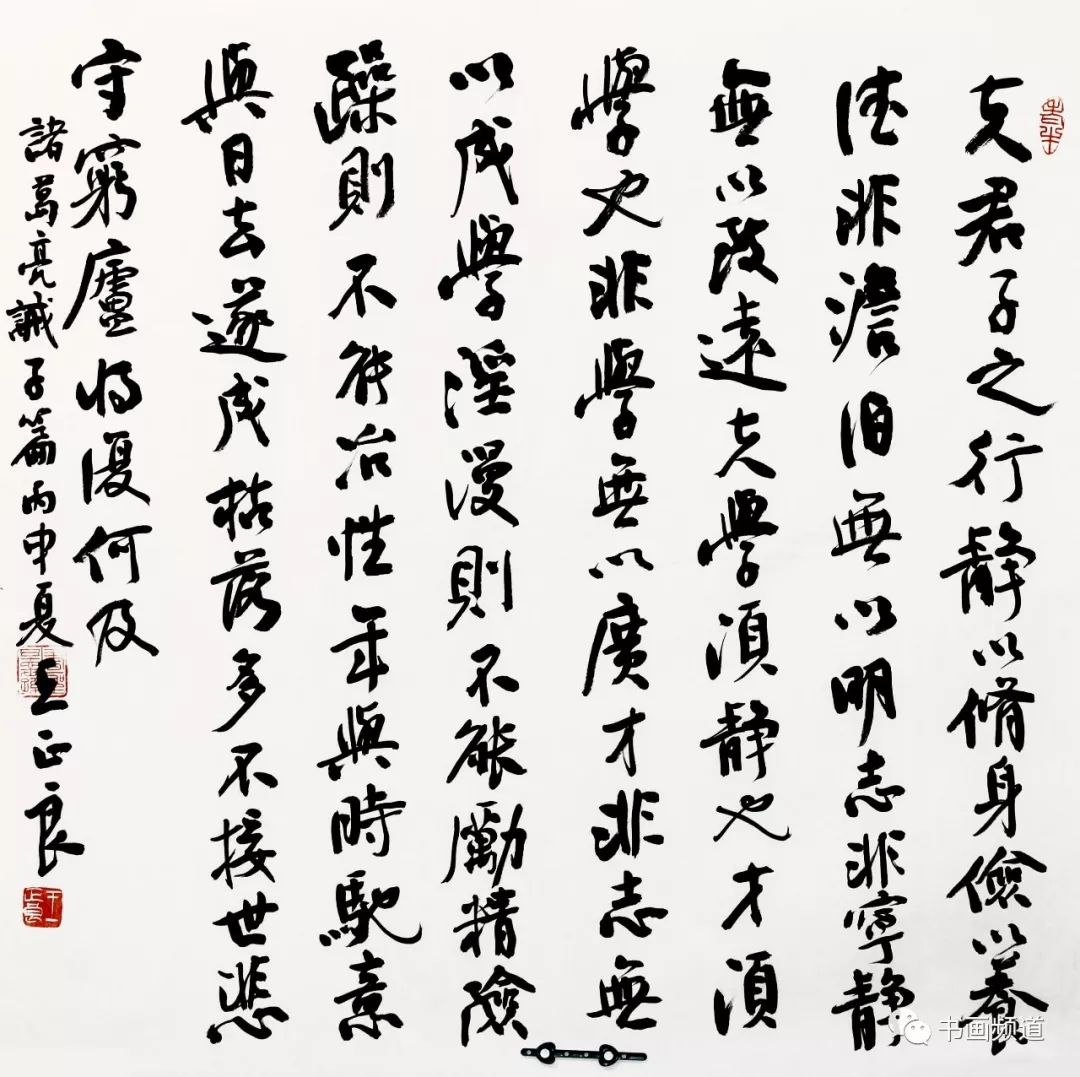 夫君子之行静以脩身儉以養
德非澹泊無以明志非寧静
無以致遠夫學須静也才須
學也非學無以廣才非志無
以成學淫漫則不能勵精險
躁則不能冶性年與時馳意
與日去遂成枯落多不接世悲
守窮廬将復何及
諸葛亮誡子篇丙申夏王正良
书画频道